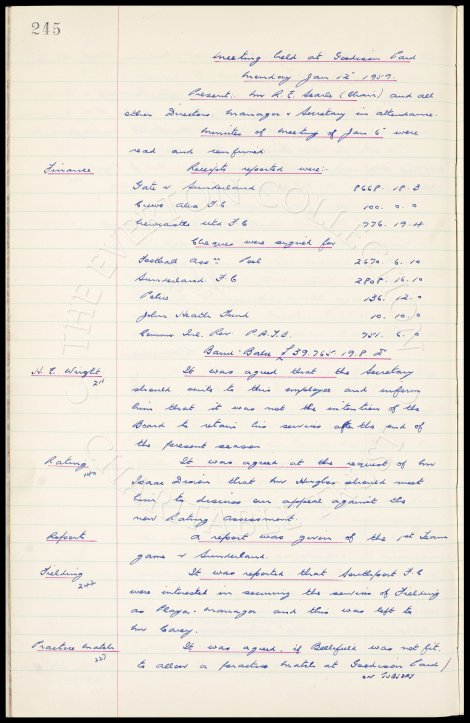 245
Meeting held at Goodison Park
Monday Jan 12th 1959.
Present. Mr R.E. Searle (Chair) and all
other Directors. Manager & Secretary in attendance.
Minutes of Meeting of Jan 6th were
read and confirmed
Finance Receipts reported were:-
Gate v Sunderland 8668. 18. 3
Crewe Alex F.C 100. 0. 0
Newcastle Utd F.C 776. 19. 4
Cheques were signed for
Football Assn Pool 2670. 6. 10
Sunderland F.C 2808. 16. 10
Police 136. 12. 0
John Heath Fund 10. 10. 0
Comms Inl. Rev. P.A.Y.E. 751. 6. 0
Bank Balce £39.765. 19. 8
H.E. Wright
211
It was agreed that the Secretary
should write to this employee and inform
him that it was not the intention of the
Board to retain his services after the end of
the present season
Rating
It was agreed at the request of Mr
Isaac Dixon that Mr Hughes should meet
him to discuss our appeal against the
new Rating assessment.
Report A report was given of the 1st Team
game v Sunderland.
Fielding
242
It was reported that Southport F.C
were interested in securing the services of Fielding
as Player-Manager and this was left to
Mr Carey.
Practice Match
227
It was agreed, if Bellefield was not fit,
to allow a practice match at Goodison Park /
on TUESDAY
THE EVERTON COLLECTION
CHARITABLE TRUST